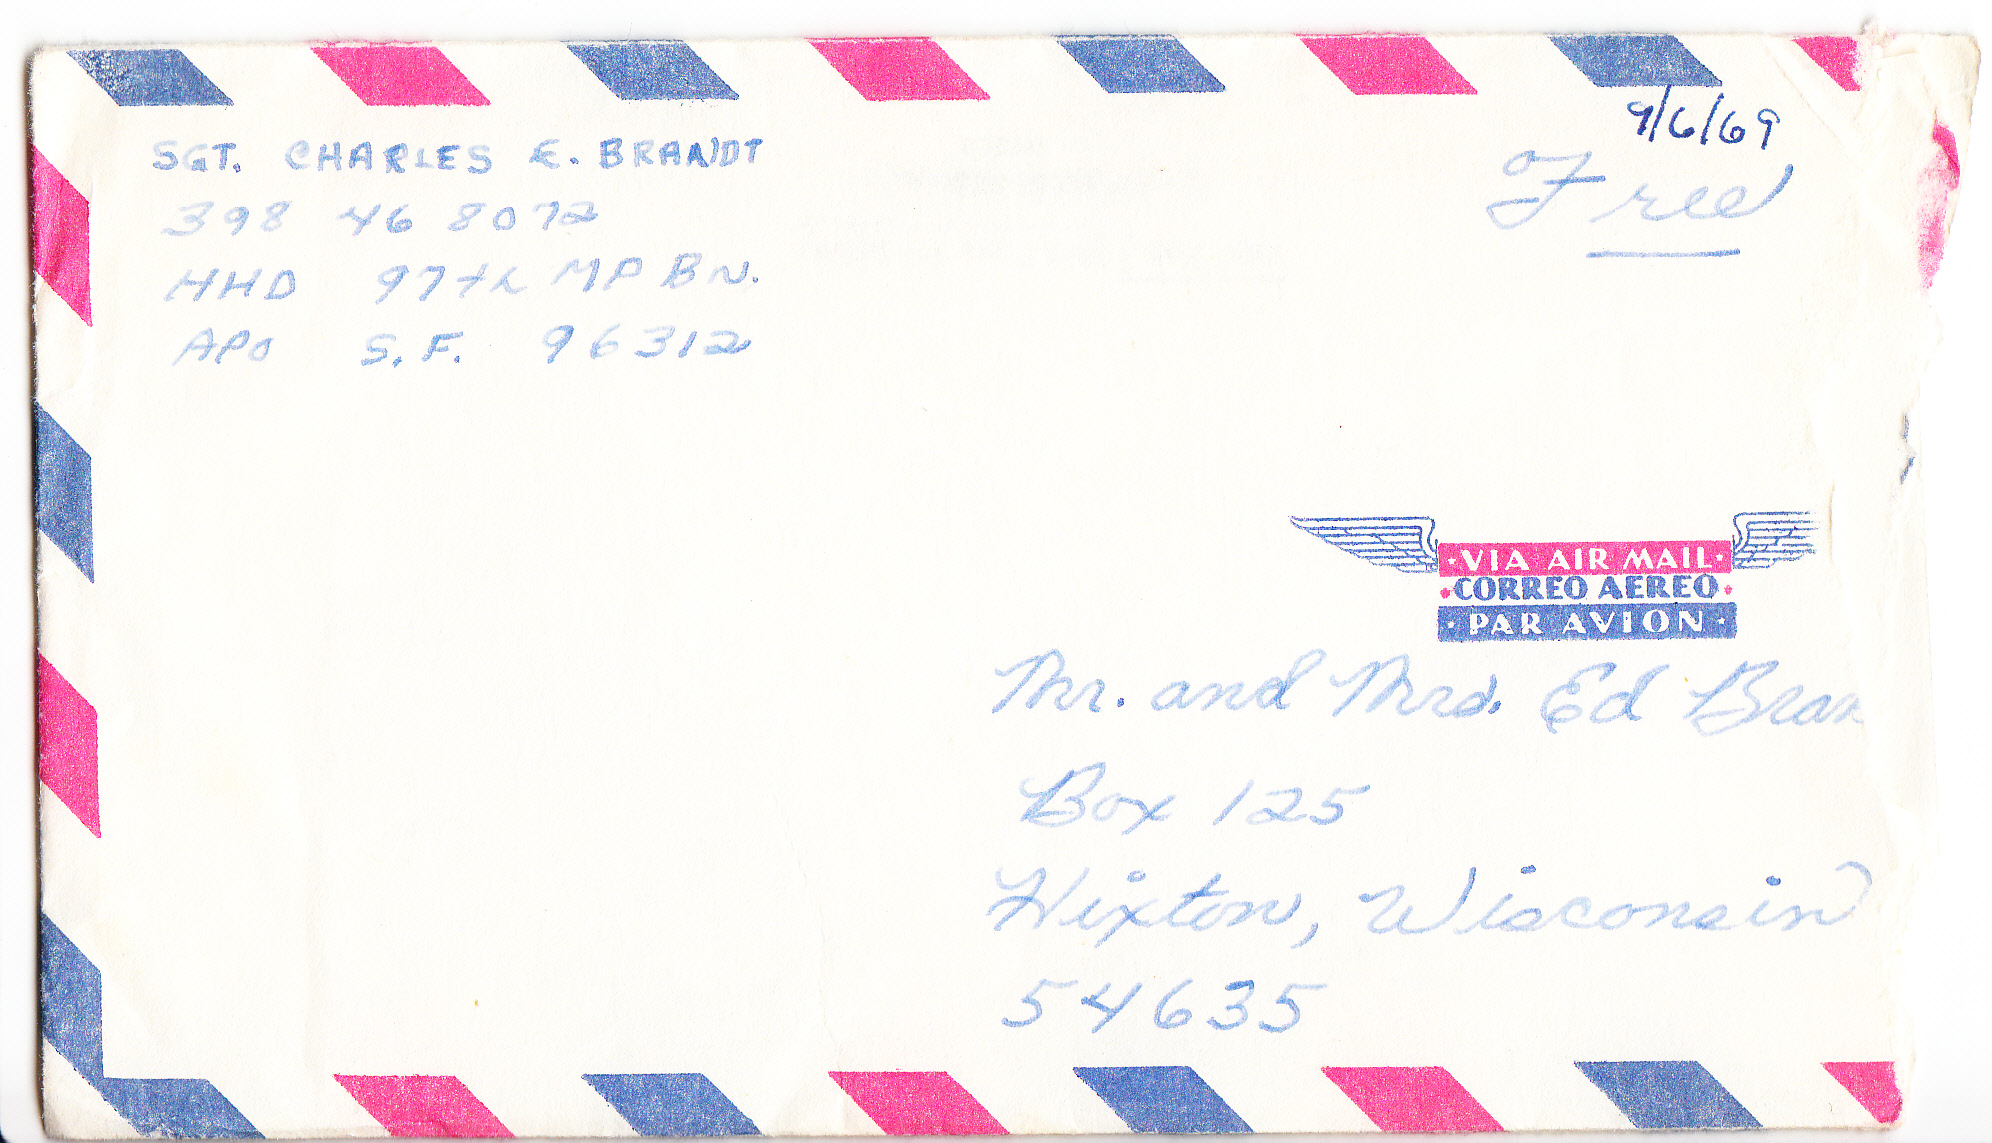 9/6/69
SGT. CHARLES E. BRANDT
398 46 8072
HHD 97th MP BN.
APO S.F. 96312
Free
VIA AIR MAIL
CORREO AEREO
PAR AVION
Mr. and Mrs. Ed Bran
Box 125
Hixton, Wisconsin
54635